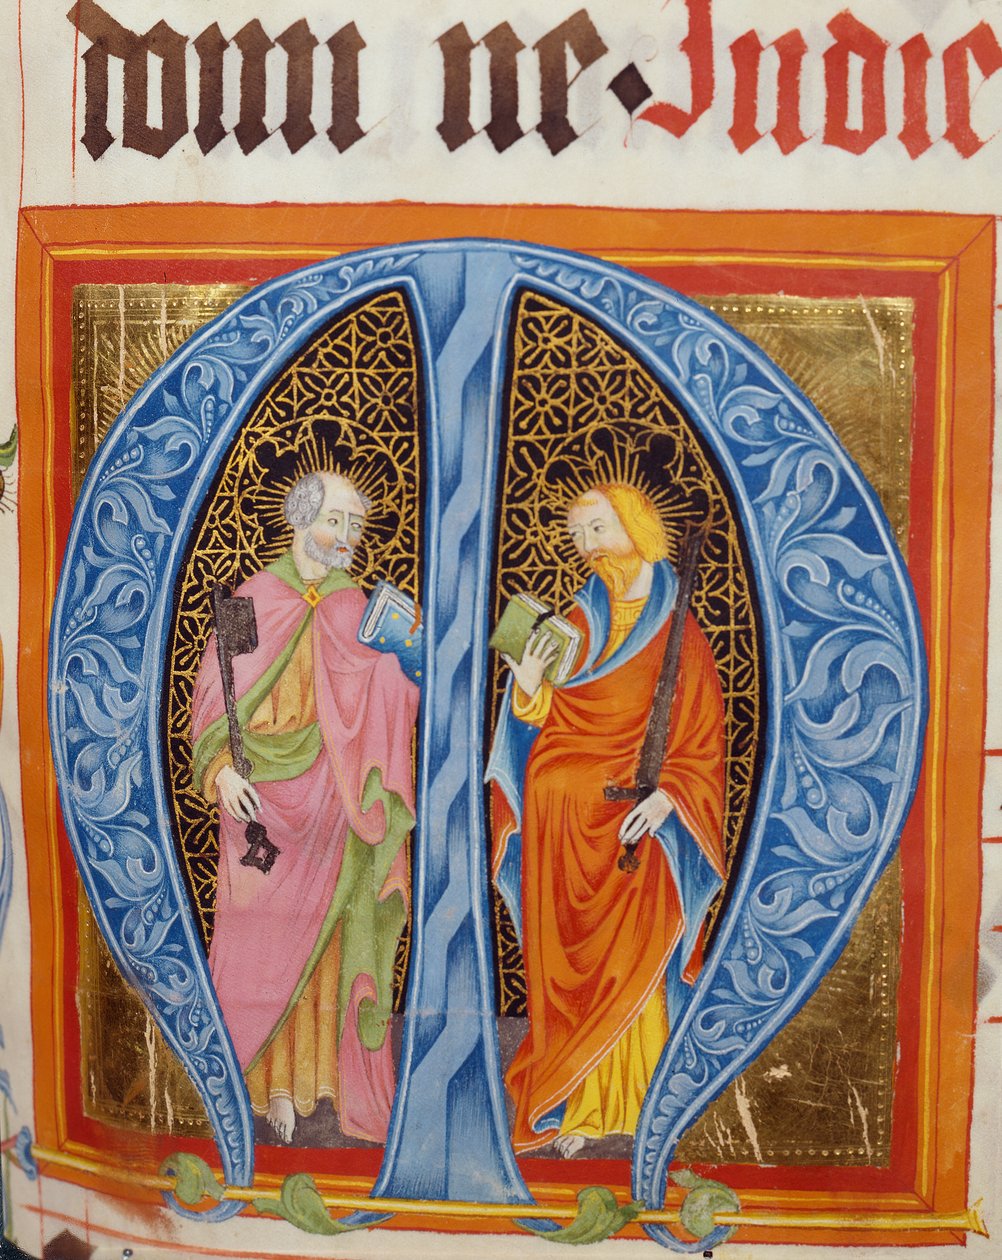 domi ne · In die
M